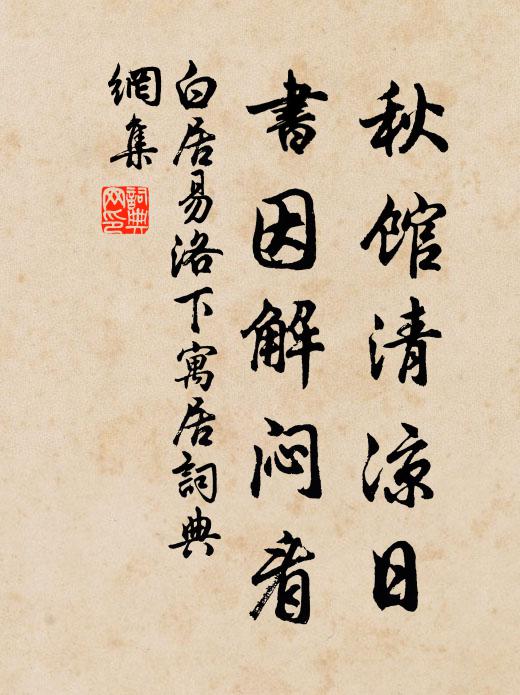 秋館清涼日
書因解悶看
白居易洛下寓居詞典
網集
詞典
网印